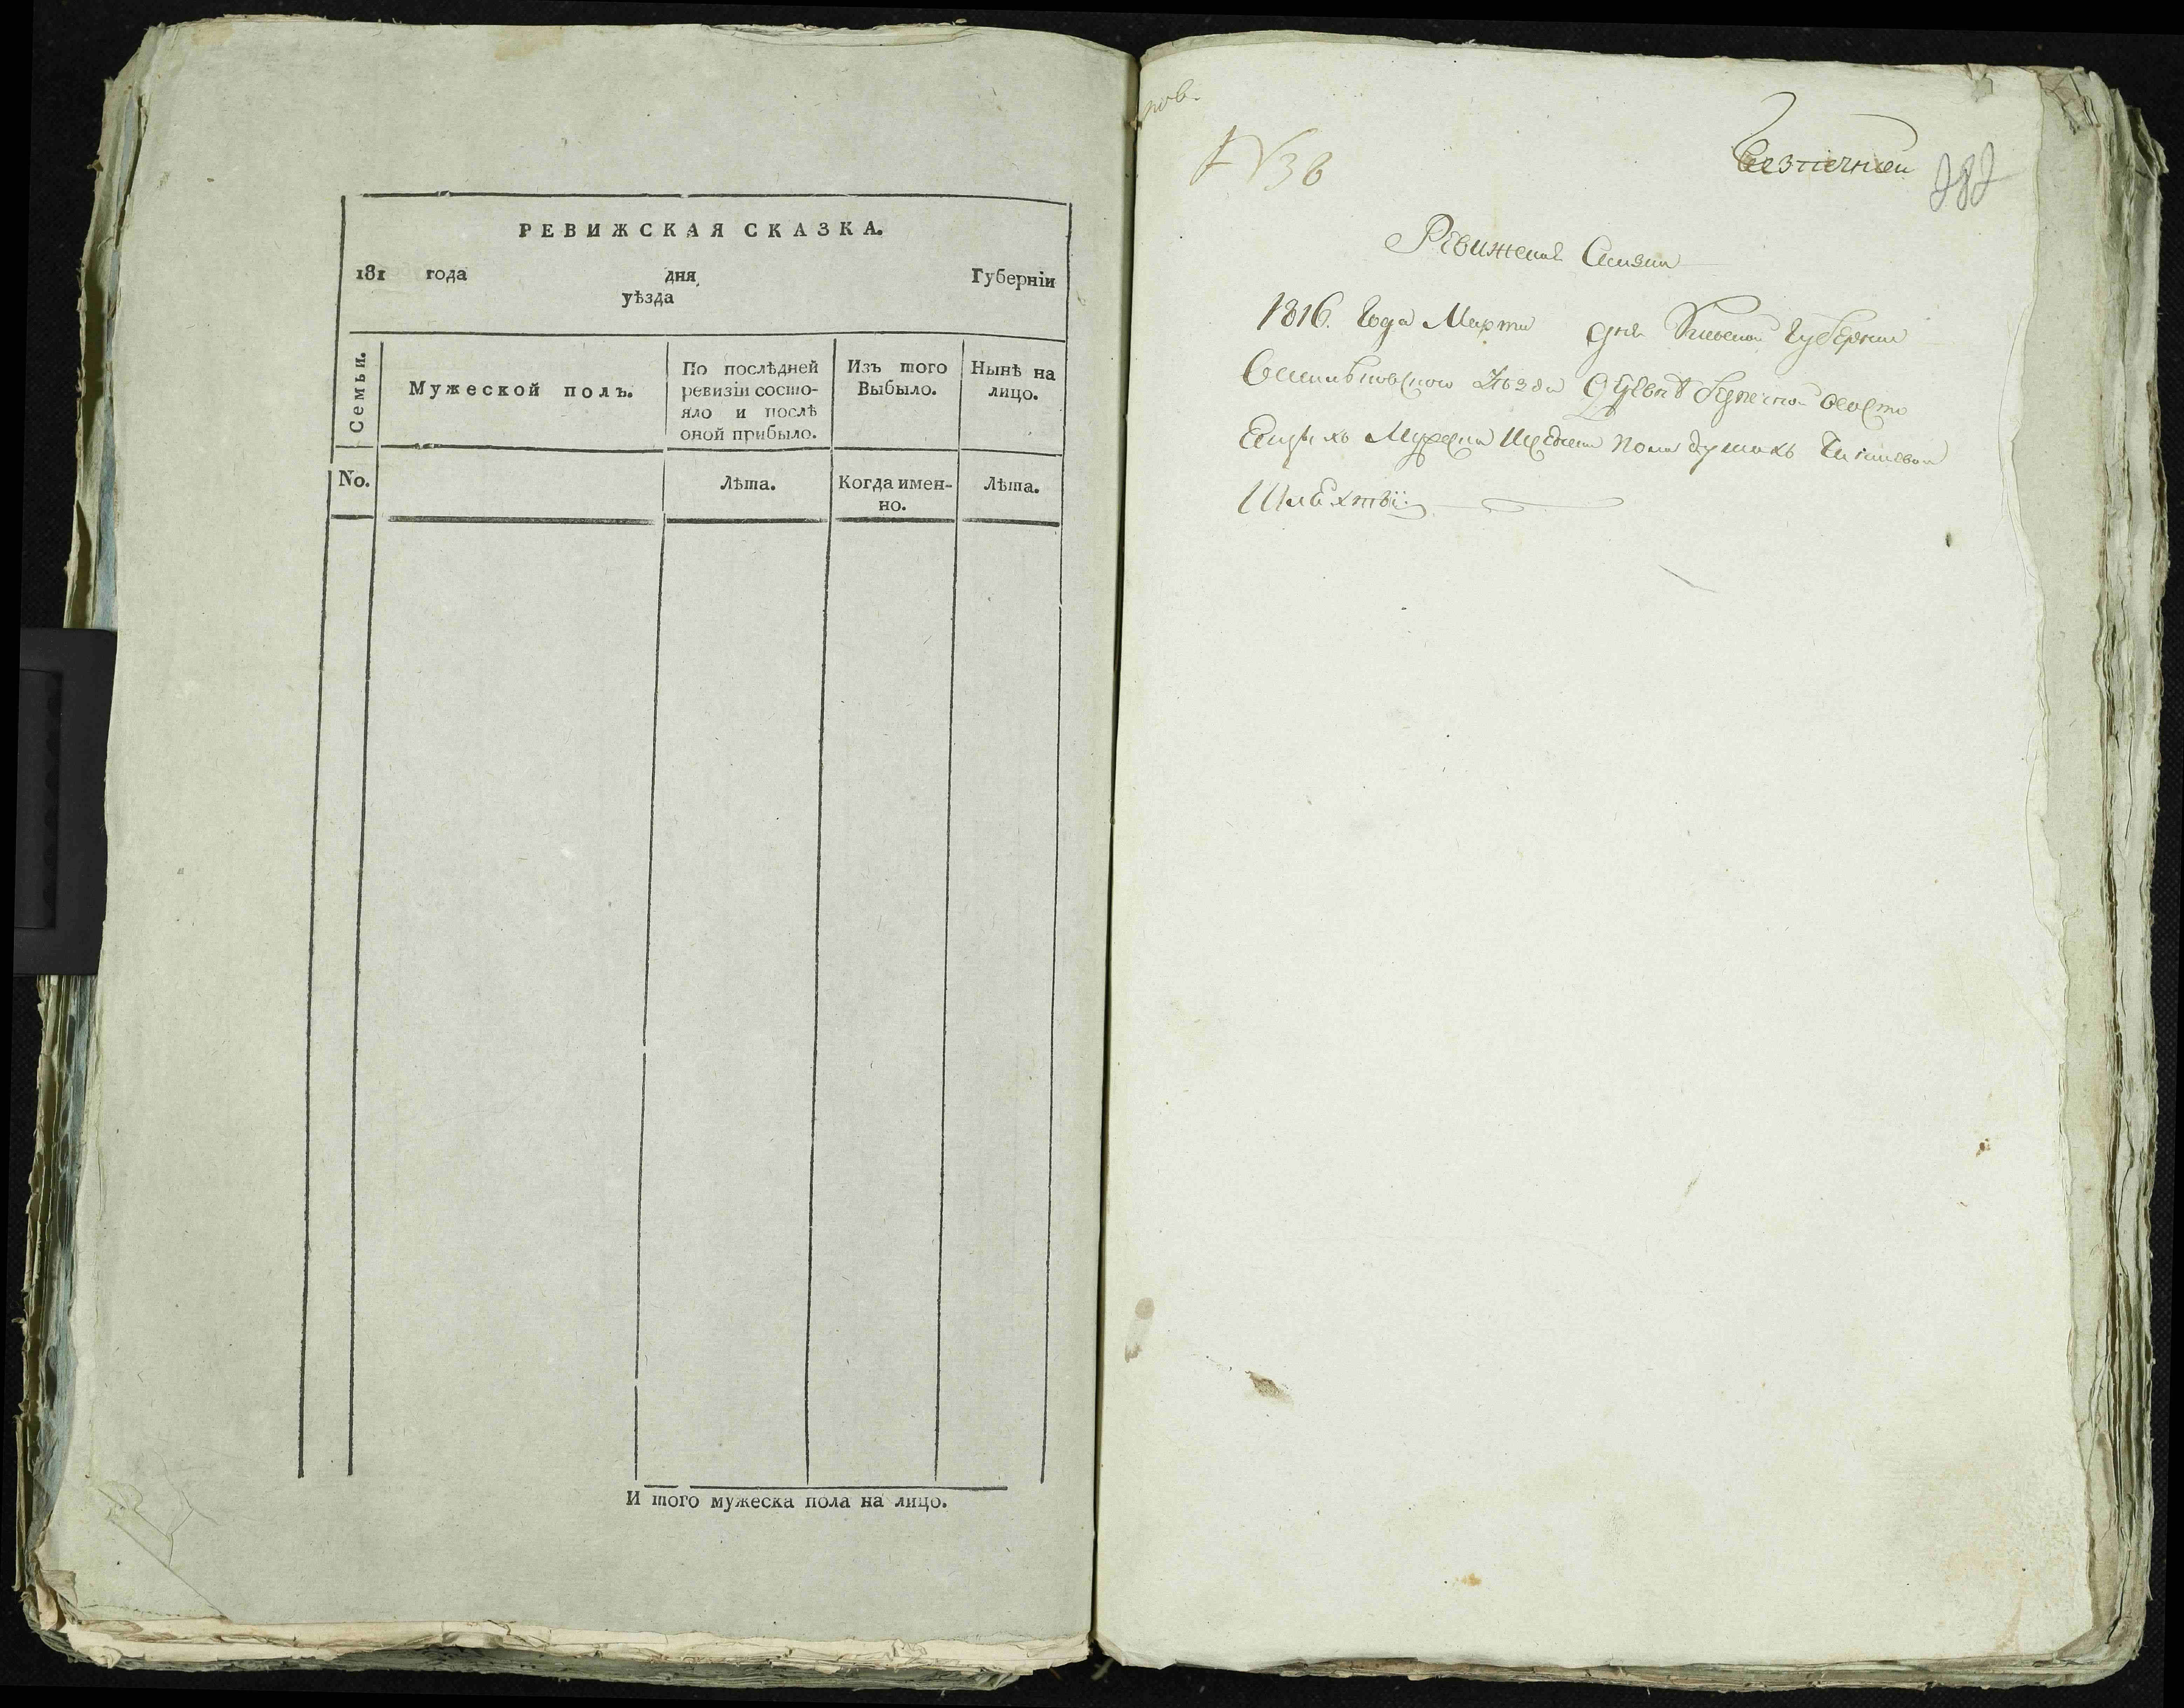 РЕВИЖСКАЯ СКАЗКА.
181 года дня Губерніи
уѣзда
Семьи.
Мужеской полъ.
По послѣдней
ревизіи состо-
яло и послѣ
оной прибыло.
Изъ того
Выбыло.
Нынѣ на
лицо.
No.
Лѣта.
Когда имен-
но.
Лѣта.
И того мужеска пола на лицо.
пов.
№ 36
Ревижская Сказка
1816. Года Марта дня Киевской Губернии
Васильковского уезда
Мужеска пола душахъ Чиншевой
Шляхты